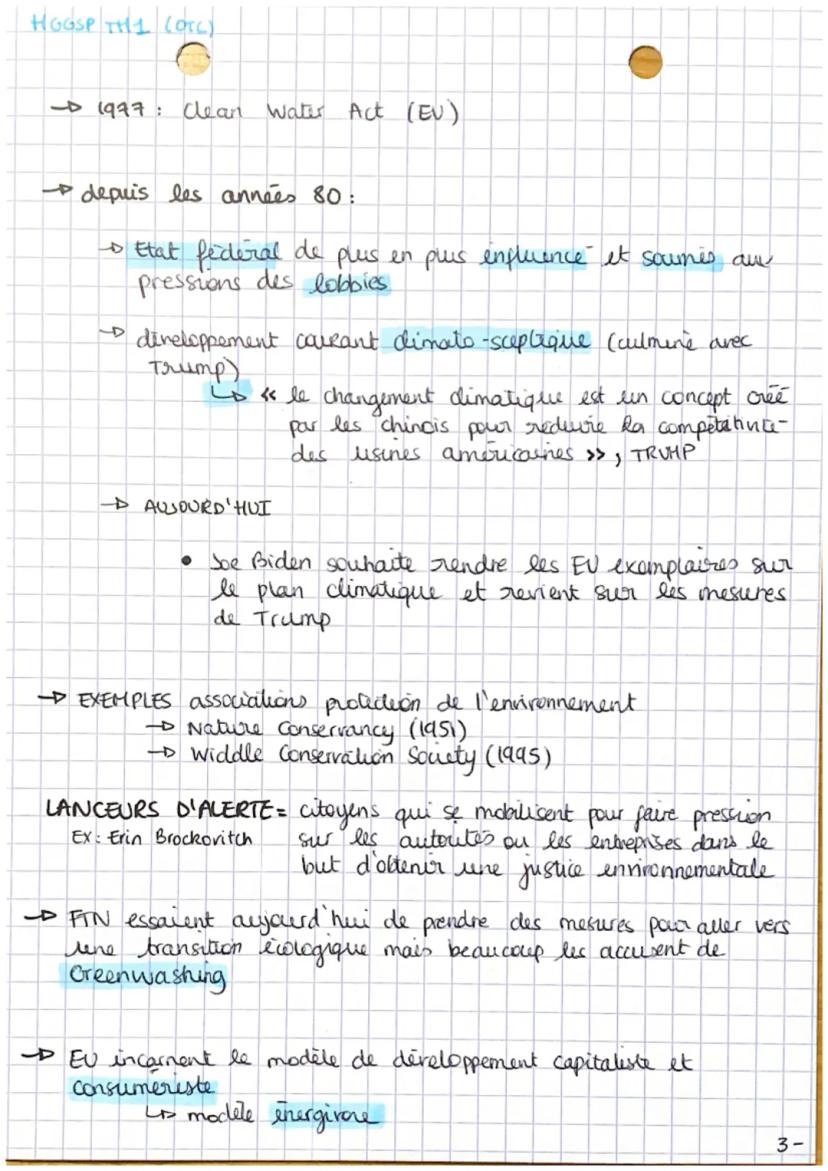 HGGSP TH1 (OTC)
→ 1977 : Clean Water Act (EU)
→ depuis les années 80 :
→ Etat fédéral de plus en plus influencé et soumis aux
pressions des lobbies
→ développement courant climato-sceptique (culminé avec
Trump)
↳ << le changement climatique est un concept créé
par les chinois pour réduire la compétitivité
des usines américaines >>, TRUMP
→ AUJOURD'HUI
• Joe Biden souhaite rendre les EU exemplaires sur
le plan climatique et revient sur les mesures
de Trump
→ EXEMPLES associations protection de l'environnement
→ Nature Conservancy (1951)
→ Widdle Conservation Society (1995)
LANCEURS D'ALERTE = citoyens qui se mobilisent pour faire pression
EX : Erin Brockovitch sur les autorités ou les entreprises dans le
but d'obtenir une justice environnementale
→ FTN essaient aujourd'hui de prendre des mesures pour aller vers
une transition écologique mais beaucoup les accusent de
Greenwashing
→ EU incarnent le modèle de développement capitaliste et
consumériste
↳ modèle énergivore
3-